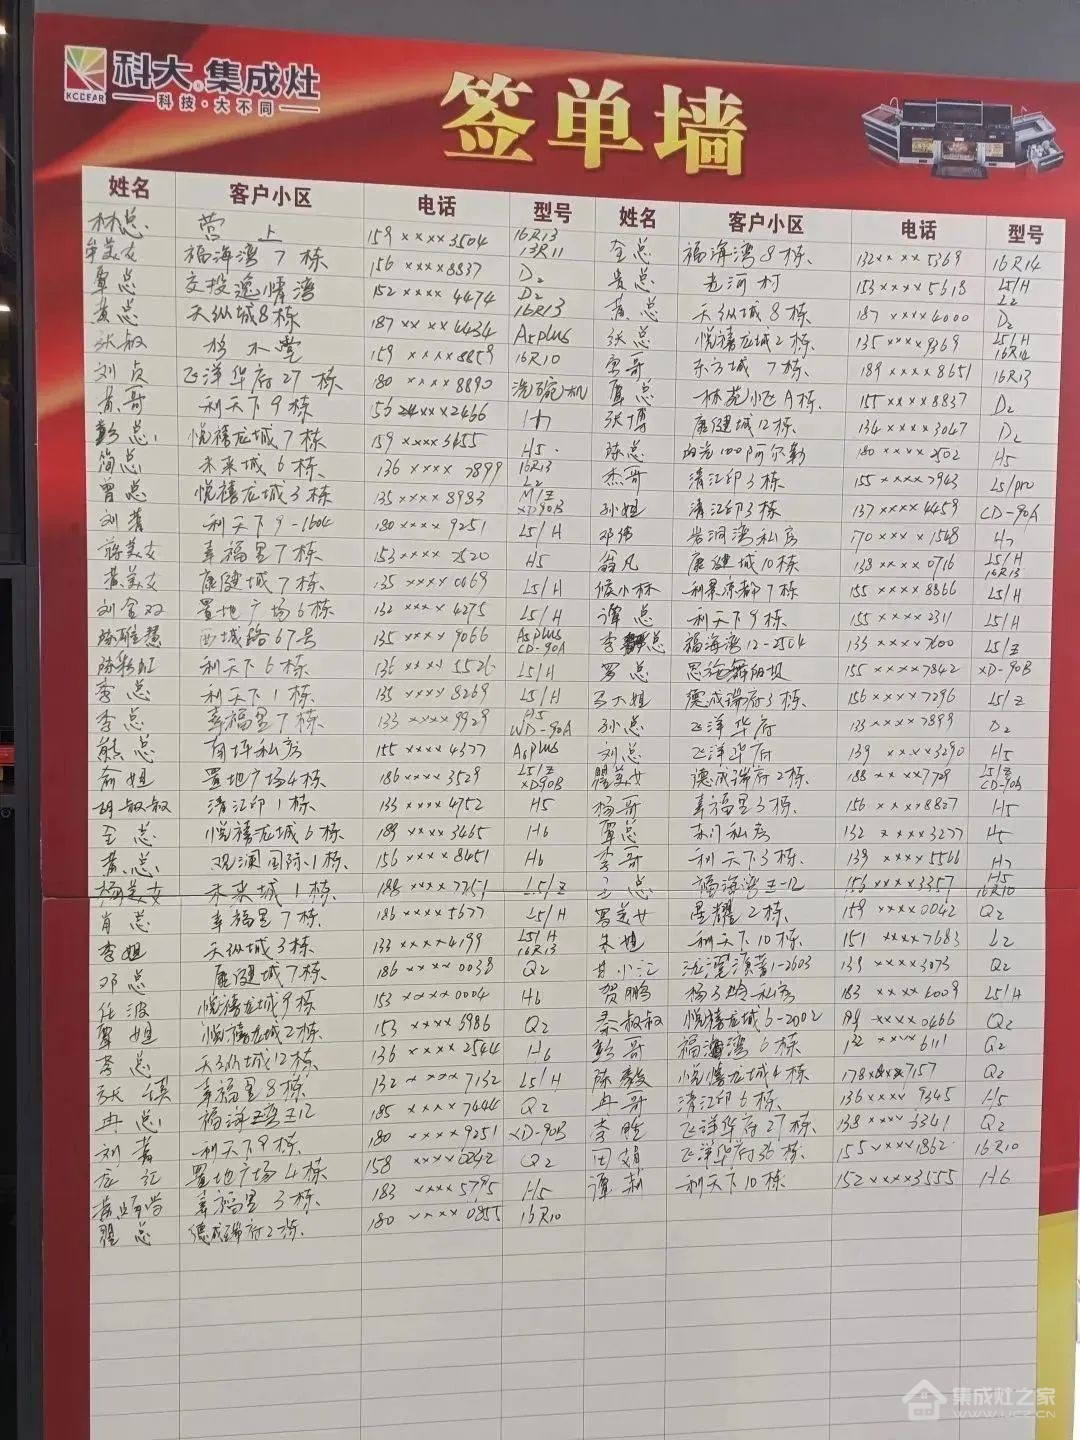 科大 集成灶
KCDEAR
科技·大不同
签单墙
姓名 客户小区 电话 型号 姓名 客户小区 电话 型号
林总 营上 159××××3504 16R13 13R11 全总 福海湾8栋 132××××5369 16R14
牟美女 福海湾7栋 156××××8837 D2 贵总 老河村 153××××5618 L5/H L2
覃总 交投逸情湾 152××××4474 D2 16R13 黄总 天纵城8栋 187××××4000 D2
黄总 天纵城8栋 187××××4434 A5plus 张总 悦禧龙城2栋 135××××9369 L5/H 16R14
张叔 159××××8859 16R10 东方城7栋 189××××8651 16R13
刘贞 飞洋华府27栋 180××××8890 洗碗机 覃总 林苑小区A栋 155××××8837 D2
黄哥 利天下9栋 2466 H7 张博 康健城12栋 134××××3047 D2
彭总 悦禧龙城7栋 159××××3455 H5 陈总 180××××2502 H5
简总 未来城6栋 136××××7899 16R13 L2 杰哥 清江印3栋 155××××7943 L5/pro
曾总 悦禧龙城3栋 135××××8983 M/Z XD90B 孙姐 清江印3栋 137××××4459 CD-90A
刘菁 利天下9-1604 180××××9251 L5/H 邓伟 岩洞湾私房 170××××1548 H7
蒋美女 幸福里7栋 153××××2520 H5 翁凡 康健城10栋 138××××0716 L5/H 16R13
黄美女 康健城7栋 135××××0069 L5/H 侯小林 利景京都7栋 155××××8866 L5/H
刘金双 置地广场6栋 132××××4275 L5/H 谭总 利天下9栋 155××××2311 L5/H
陈雅慧 西城路67号 135××××9066 A5plus CD-90A 李总 福海湾12-2504 133××××7600 L5/Z
陈彩红 利天下6栋 136××××5526 L5/H 罗总 思源舞阳坝 155××××7842 XD-90B
李总 利天下1栋 135××××8269 L5/H 马大姐 德成瑞府3栋 156××××7296 L5/Z
李总 幸福里7栋 133××××9929 H5 WD-90A 孙总 飞洋华府 133××××7899 D2
熊总 南坪私房 155××××4377 A6plus 刘总 飞洋华府 139××××3290 H5
俞姐 置地广场4栋 186××××3529 L5/Z XD90B 瞿美女 德成瑞府2栋 188××××7729 L5/Z CD-90B
胡叔叔 清江印1栋 133××××4752 H5 杨哥 幸福里3栋 156××××8827 H5
全总 悦禧龙城6栋 189××××3465 H6 覃总 东门私房 132××××3277 H5
黄总 观澜国际1栋 156××××8451 H6 李哥 利天下3栋 139××××5566 H7
杨美女 未来城1栋 188××××7751 L5/Z 王总 福海湾王-12 156××××3357 H5 16R10
肖总 幸福里7栋 186××××5677 L5/H 罗美女 星耀2栋 159××××0042 Q2
李姐 天纵城3栋 133××××4199 L5/H 16R13 朱姐 利天下10栋 151××××7683 L2
邓总 康健城7栋 186××××0038 Q2 甘小江 1-2603 139××××3073 Q2
任波 悦禧龙城9栋 153××××0004 H6 贺鹏 杨子岭私房 183××××6009 L5/H
覃姐 悦禧龙城2栋 153××××5986 Q2 秦叔叔 悦禧龙城6-2002 ××××0466 Q2
李总 天纵城12栋 136××××2544 H6 彭哥 福海湾6栋 132×××6111 Q2
张镇 幸福里8栋 132××××7132 L5/H 陈毅 悦禧龙城4栋 178××××7157 Q2
冉总 福海湾王12 185××××7444 Q2 冉哥 清江印6栋 136××××9345 H5
刘菁 利天下9栋 180××××9251 XD-90B 李胜 飞洋华府27栋 138××××6341 Q2
左江 置地广场4栋 158××××6242 Q2 田娟 飞洋华府36栋 155××××1862 16R10
幸福里3栋 183××××5795 H5 谭莉 利天下10栋 152××××3555 H6
瞿总 德成瑞府2栋 180××××0855 16R10
集成灶之家
WWW.JJCZ.CN